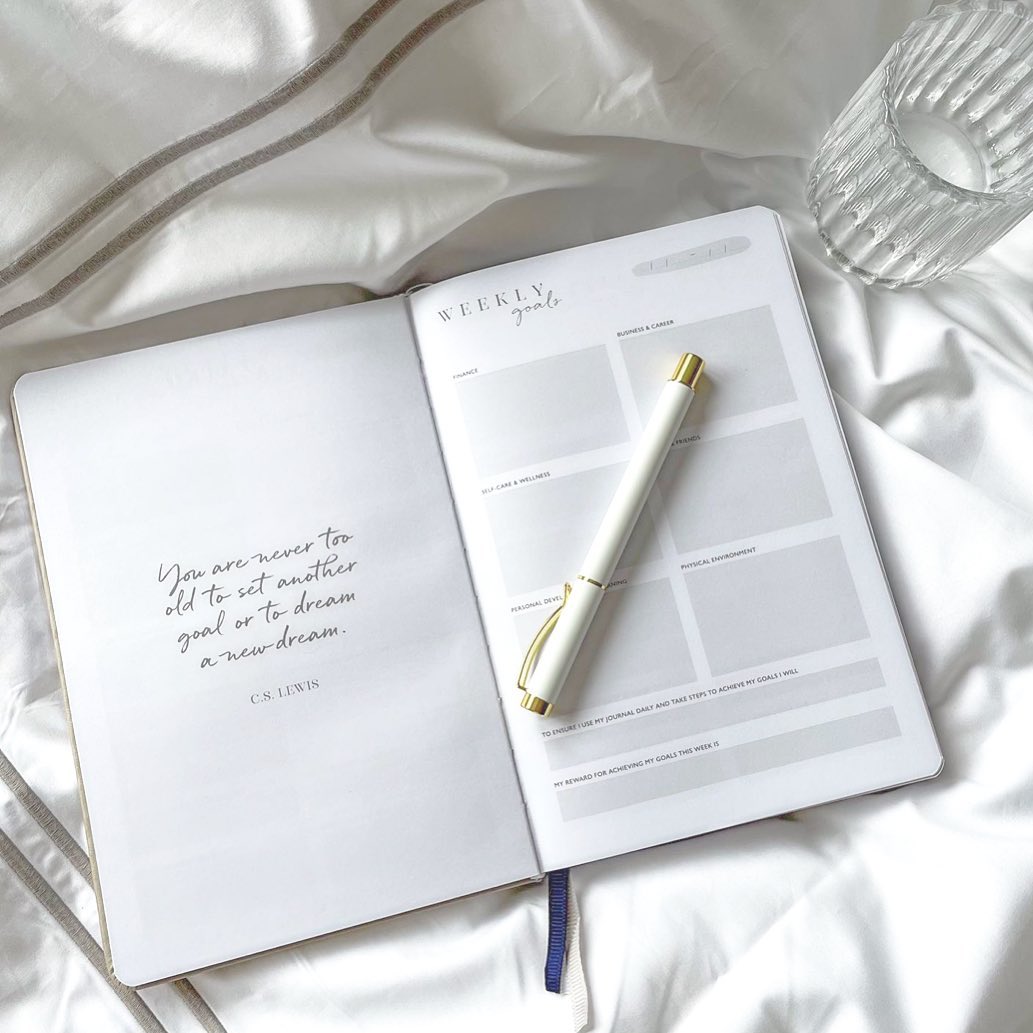 You are never too
old to set another
goal or to dream
a new dream.
C.S. LEWIS
WEEKLY
goals
FINANCE
BUSINESS & CAREER
SELF-CARE & WELLNESS
& FRIENDS
PERSONAL
PHYSICAL ENVIRONMENT
TO ENSURE I USE MY JOURNAL DAILY AND TAKE STEPS TO ACHIEVE MY GOALS I WILL
MY REWARD FOR ACHIEVING MY GOALS THIS WEEK IS